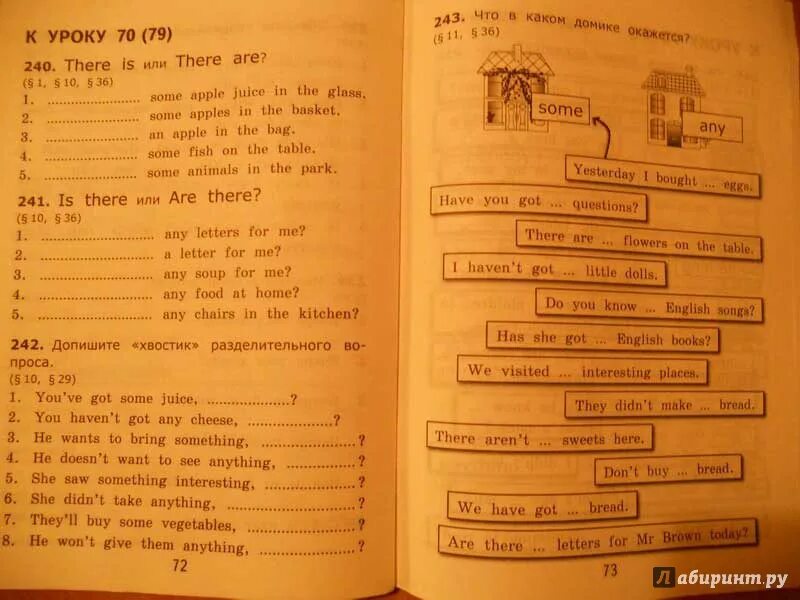 К УРОКУ 70 (79)
240. There is или There are?
(§ 1, § 10, § 36)
1. .................... some apple juice in the glass.
2. .................... some apples in the basket.
3. .................... an apple in the bag.
4. .................... some fish on the table.
5. .................... some animals in the park.
241. Is there или Are there?
(§ 10, § 36)
1. .................... any letters for me?
2. .................... a letter for me?
3. .................... any soup for me?
4. .................... any food at home?
5. .................... any chairs in the kitchen?
242. Допишите «хвостик» разделительного во-
проса.
(§ 10, § 29)
1. You've got some juice, ................?
2. You haven't got any cheese, ................?
3. He wants to bring something, ................?
4. He doesn't want to see anything, ................?
5. She saw something interesting, ................?
6. She didn't take anything, ................?
7. They'll buy some vegetables, ................?
8. He won't give them anything, ................?
72
243. Что в каком домике окажется?
(§ 11, § 36)
some
any
Yesterday I bought ... eggs.
Have you got ... questions?
There are ... flowers on the table.
I haven't got ... little dolls.
Do you know ... English songs?
Has she got ... English books?
We visited ... interesting places.
They didn't make ... bread.
There aren't ... sweets here.
Don't buy ... bread.
We have got ... bread.
Are there ... letters for Mr Brown today?
73
Лабиринт.ру